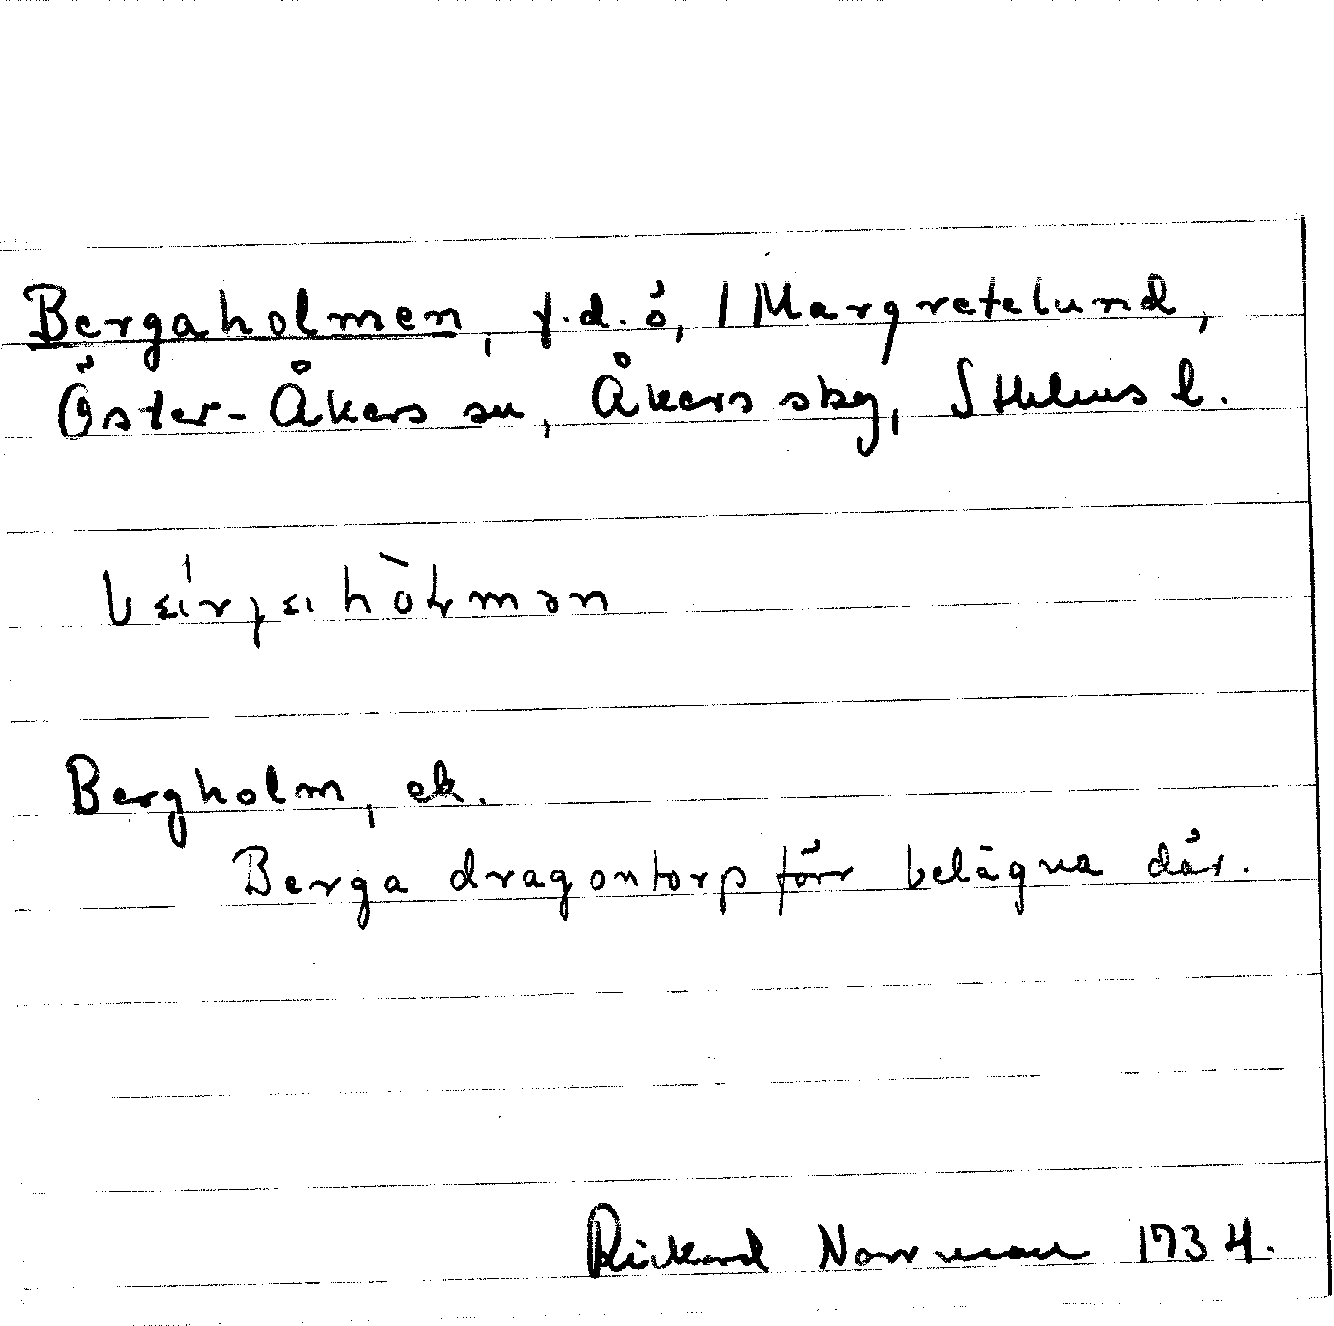 Bergaholmen, f.d. ö, / Margretelund,
Öster-Åkers sn, Åkers skg, Sthlms l.
Bergholm, ek.
Berga dragontorp förr belägna där.
Rickard Norrman 1934.